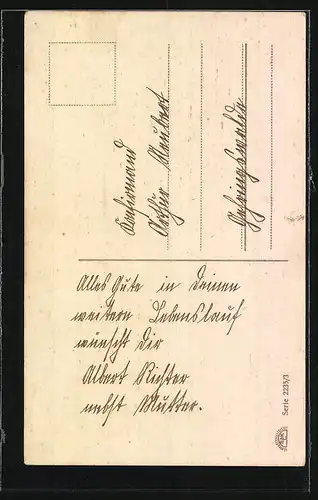 Konfirmand
Arthur Naubert
Gehringswalde
Alles Gute in Deinen
weitern Lebenslauf
wünscht Dir
Albert Richter
nebst Mutter.
Serie 2235/3